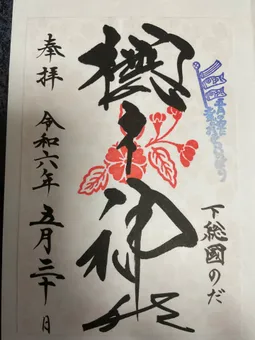 下総國のだ
櫻木神社
奉拝 令和六年 五月三十日